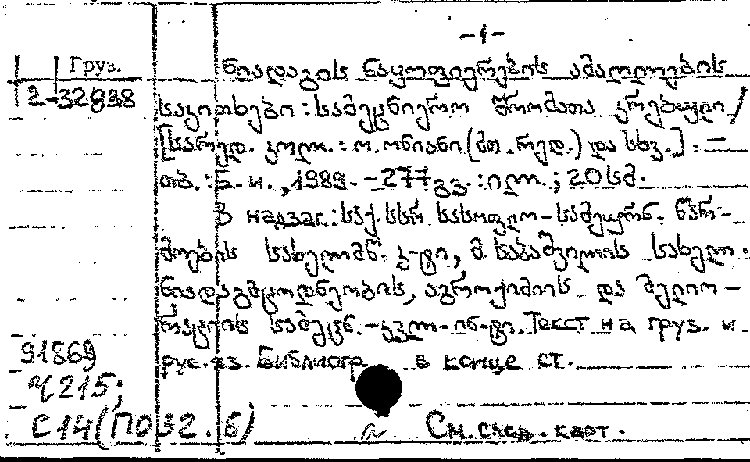 -1-
Груз.
2-32938
ნიადაგის ნაყოფიერების ამაღლების
საკითხები : სამეცნიერო შრომათა კრებული /
[სარედ. კოლ. : ო. ონიანი (მთ. რედ.) და სხვ.]. —
თბ. : б. и., 1989. - 277 გვ. : ილ. ; 20 სმ.
В надзаг. : საქ. სსრ სასოფლო-სამეურნ. წარ-
მოების სახელმწ. კ-ტი, მ. საბაშვილის სახელ.
ნიადაგმცოდნეობის, აგროქიმიის და მელიო-
რაციის სამეცნ.-კვლ. ინ-ტი. Текст на груз. и
рус. яз. Библиогр. в конце ст.
91869
Ч 215;
С 14 (П032.6)
См. след. карт.